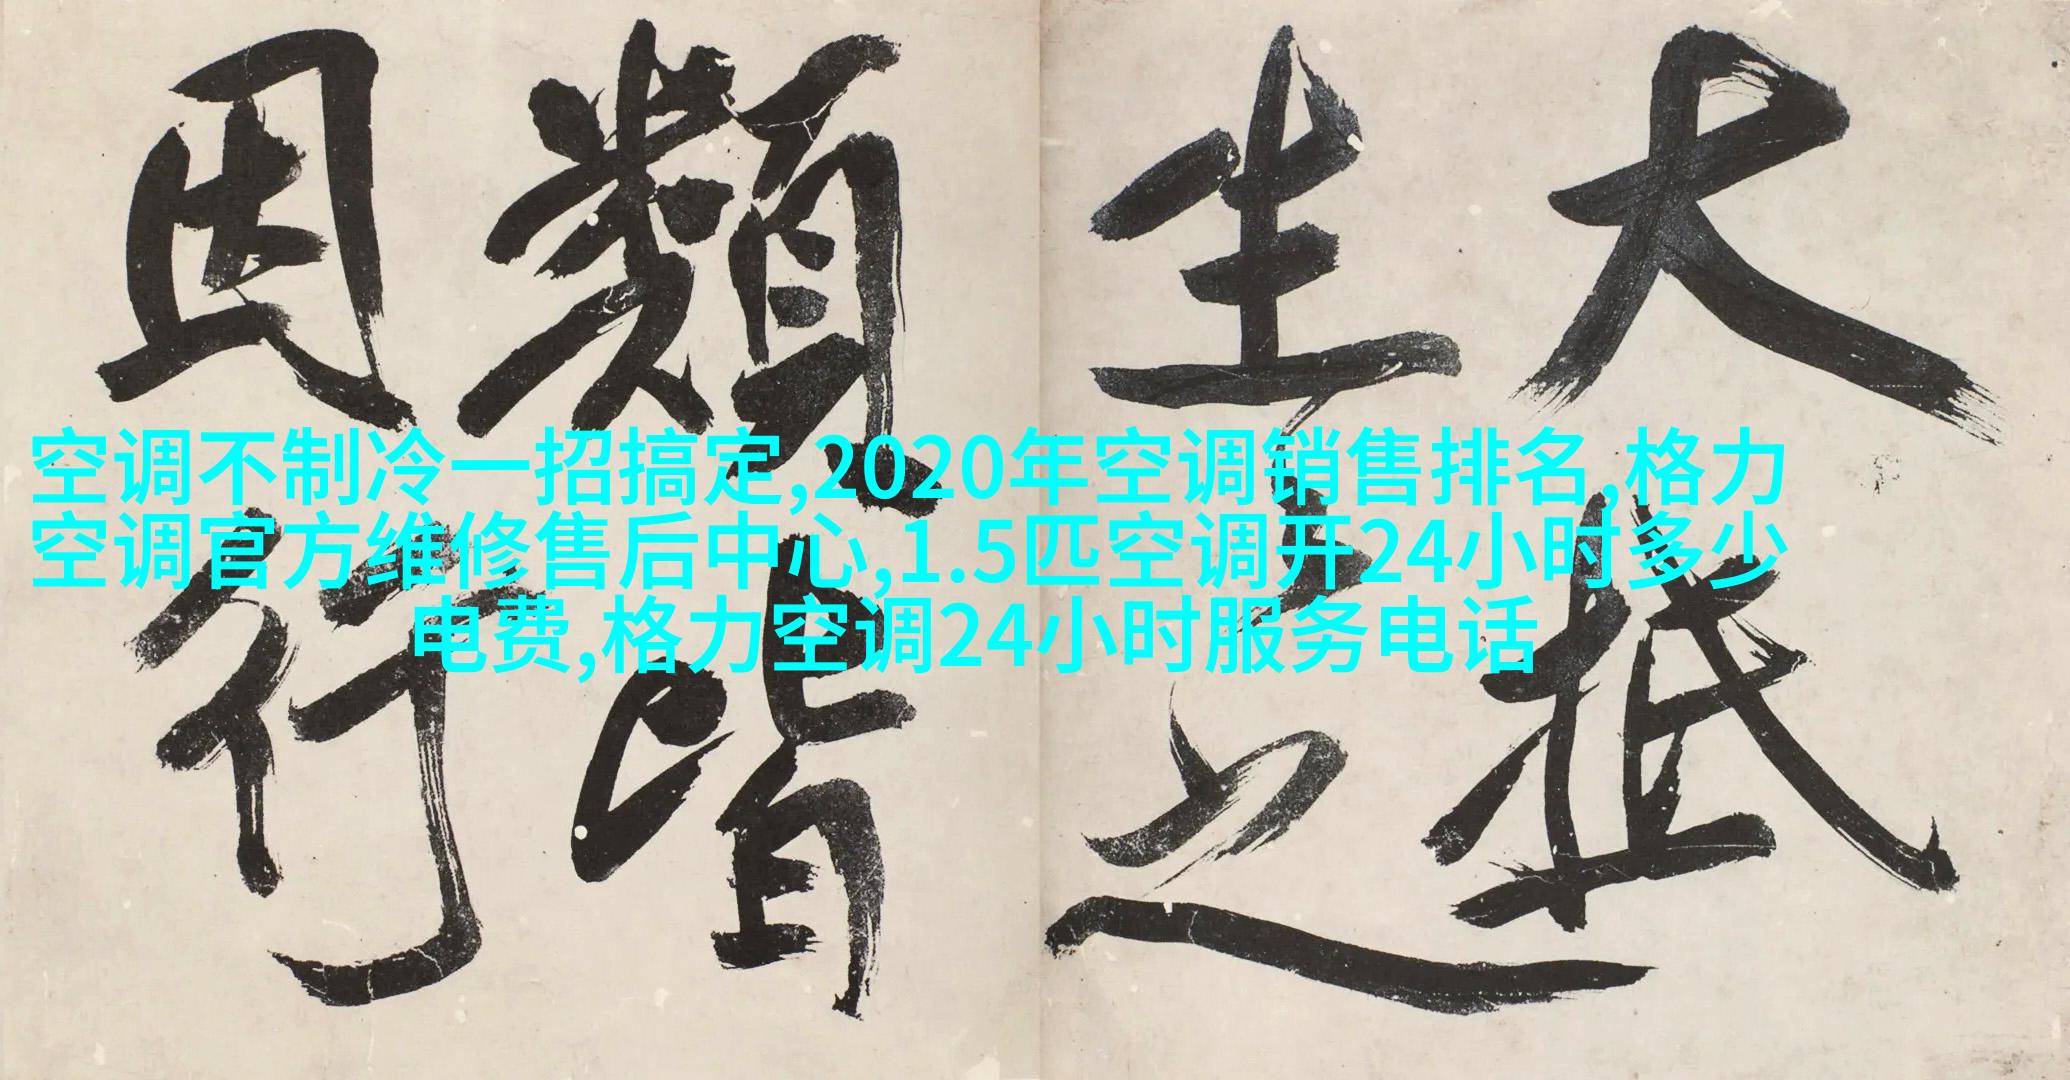 大抵
生之
類皆
因行
空调不制冷一招搞定,2020年空调销售排名,格力
空调官方维修售后中心,1.5匹空调开24小时多少
电费,格力空调24小时服务电话